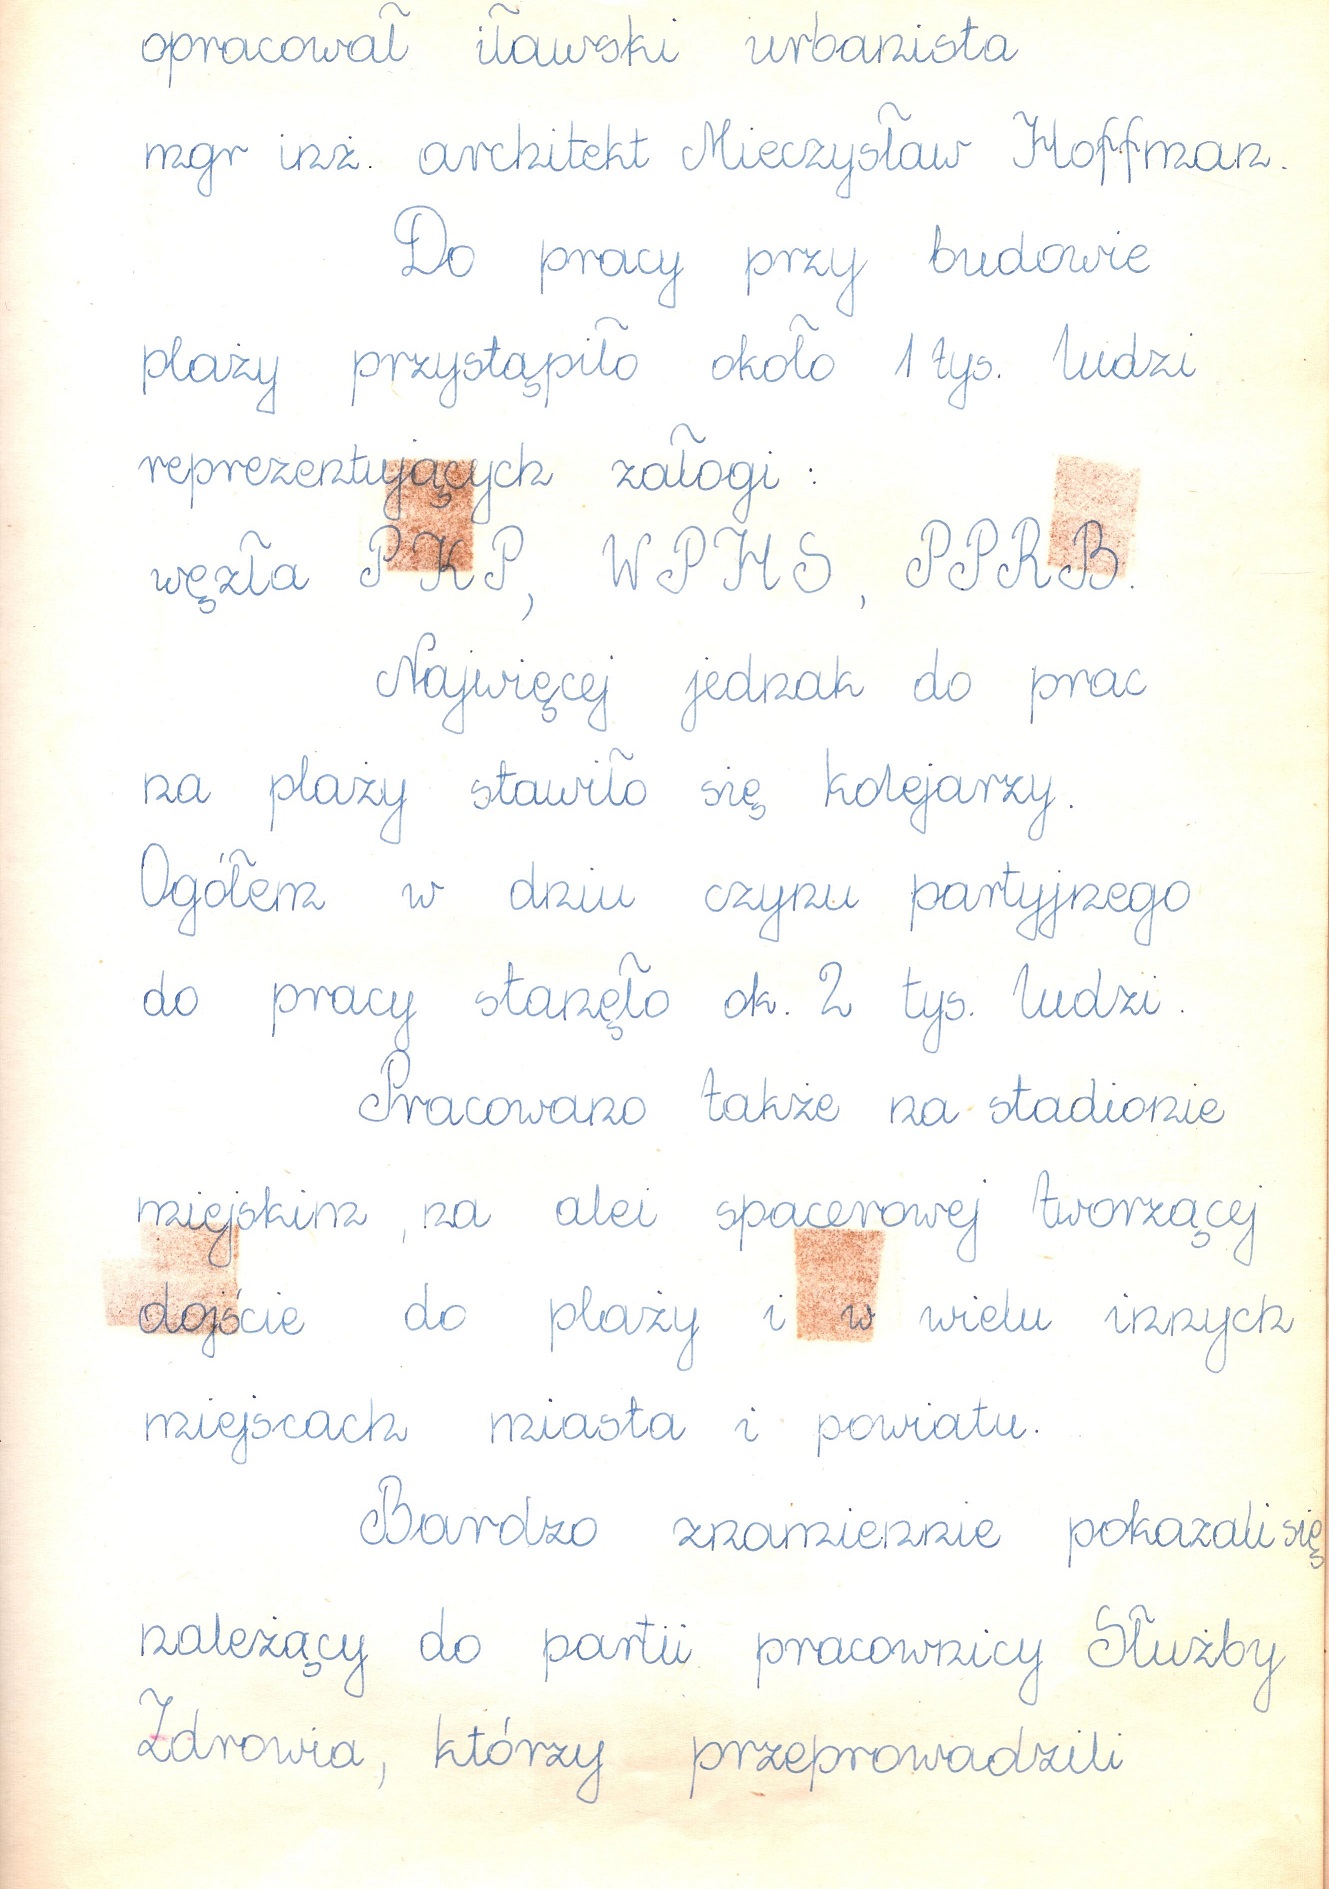 opracował iławski urbanista
mgr inż. architekt Mieczysław Hoffman.
Do pracy przy budowie
plaży przystąpiło około 1 tys. ludzi
reprezentujących załogi :
węzła PKP, WPHS, PPRB.
Najwięcej jednak do prac
na plaży stawiło się kolejarzy.
Ogółem w dniu czynu partyjnego
do pracy stanęło ok. 2 tys. ludzi.
Pracowano także na stadionie
miejskim, na alei spacerowej tworzącej
dojście do plaży i w wielu innych
miejscach miasta i powiatu.
Bardzo znamiennie pokazali się
należący do partii pracownicy Służby
Zdrowia, którzy przeprowadzili